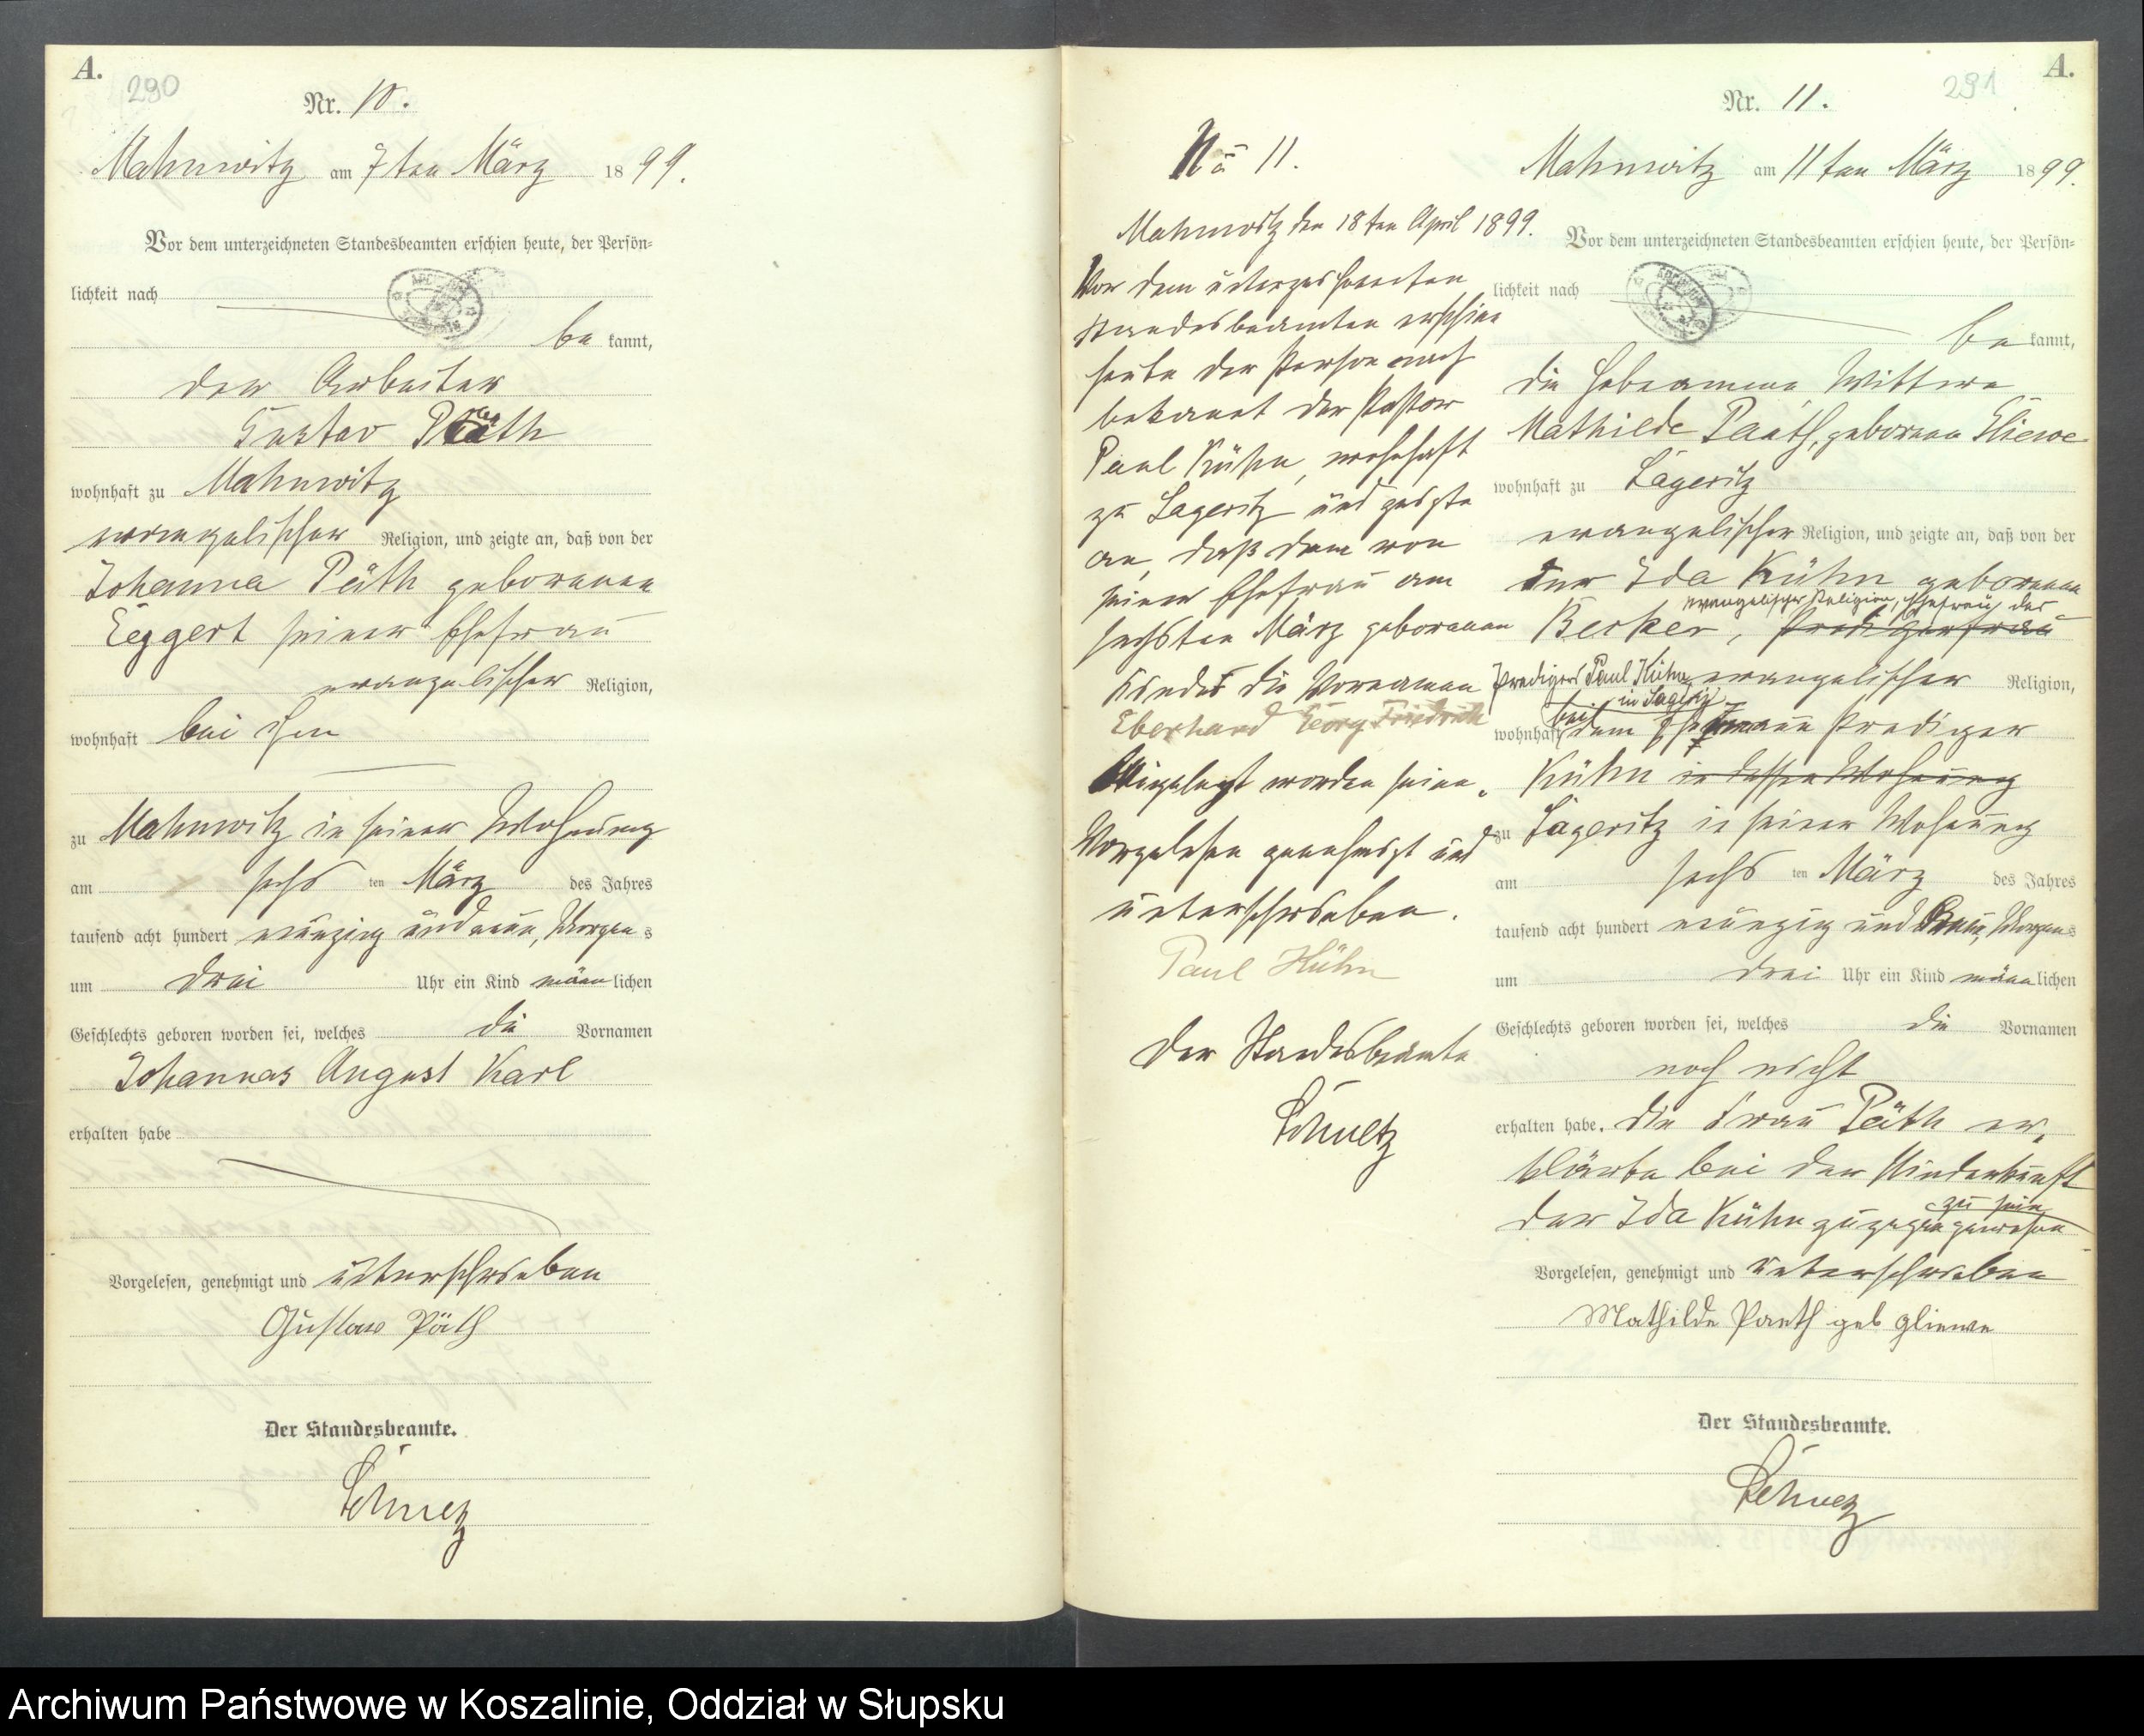 A.
290
Nr. 10.
Mahnwitz am 7ten März 1899.
Vor dem unterzeichneten Standesbeamten erschien heute, der Persön=
lichkeit nach
be kannt,
der Arbeiter
Gustav Päth
wohnhaft zu Mahnwitz
evangelischer Religion, und zeigte an, daß von der
Johanna Päth geborenen
Eggert seiner Ehefrau
evangelischer Religion,
wohnhaft bei ihm
zu Mahnwitz in seiner Wohnung
am sechs ten März des Jahres
tausend acht hundert neunzig und neun, Morgens
um drei Uhr ein Kind männlichen
Geschlechts geboren worden sei, welches die Vornamen
Johannes August Karl
erhalten habe
Vorgelesen, genehmigt und unterschrieben
Gustav Päth
Der Standesbeamte.
A.
291
Nr. 11.
Mahnwitz am 11ten März 1899.
Vor dem unterzeichneten Standesbeamten erschien heute, der Persön=
lichkeit nach
be kannt,
die Hebeamme, Wittwe
Mathilde Paeth, geborene Gliewe
wohnhaft zu Lageritz
evangelischer Religion, und zeigte an, daß von der
der Ida Kühn geborenen
evangelischer Religion, Ehefrau des
Becker, Predigerfrau
Predigers Paul Kühn evangelischer Religion,
in Lageritz
wohnhaft bei dem Ehemann Prediger
Kühn in dessen Wohnung
zu Lageritz in seiner Wohnung
am sechs ten März des Jahres
tausend acht hundert neunzig und neun, Morgens
um drei Uhr ein Kind männlichen
Geschlechts geboren worden sei, welches die Vornamen
noch nicht
erhalten habe. Die Frau Päth er=
klärte bei der Niederkunft
zu sein
der Ida Kühn zugegen gewesen
Vorgelesen, genehmigt und unterschrieben
Mathilde Paeth geb Gliewe
Der Standesbeamte.
No 11.
Mahnwitz den 18ten April 1899.
Vor dem unterzeichneten
Standesbeamten erschien
heute der Person nach
bekannt der Pastor
Paul Kühn, wohnhaft
zu Lageritz und zeigte
an, daß dem von
seiner Ehefrau am
sechsten März geborenen
Kindes die Vornamen
Eberhard Georg Friedrich
beigelegt worden seien.
Vorgelesen genehmigt und
unterschrieben.
Paul Kühn
Der Standesbeamte
Archiwum Państwowe w Koszalinie, Oddział w Słupsku